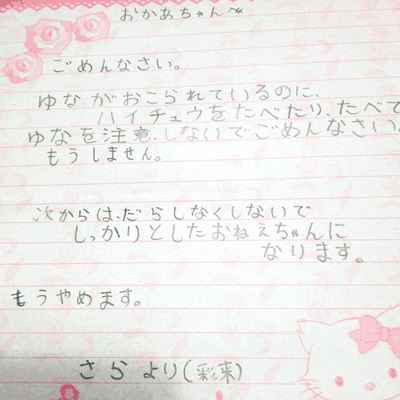 おかあちゃんへ
ごめんなさい。
ゆながおこられているのに、
ハイチュウをたべたり、たべて
ゆなを注意しないでごめんなさい。
もうしません。
次からは、だらしなくしないで
しっかりとしたおねえちゃんに
なります。
もうやめます。
さらより(彩来)